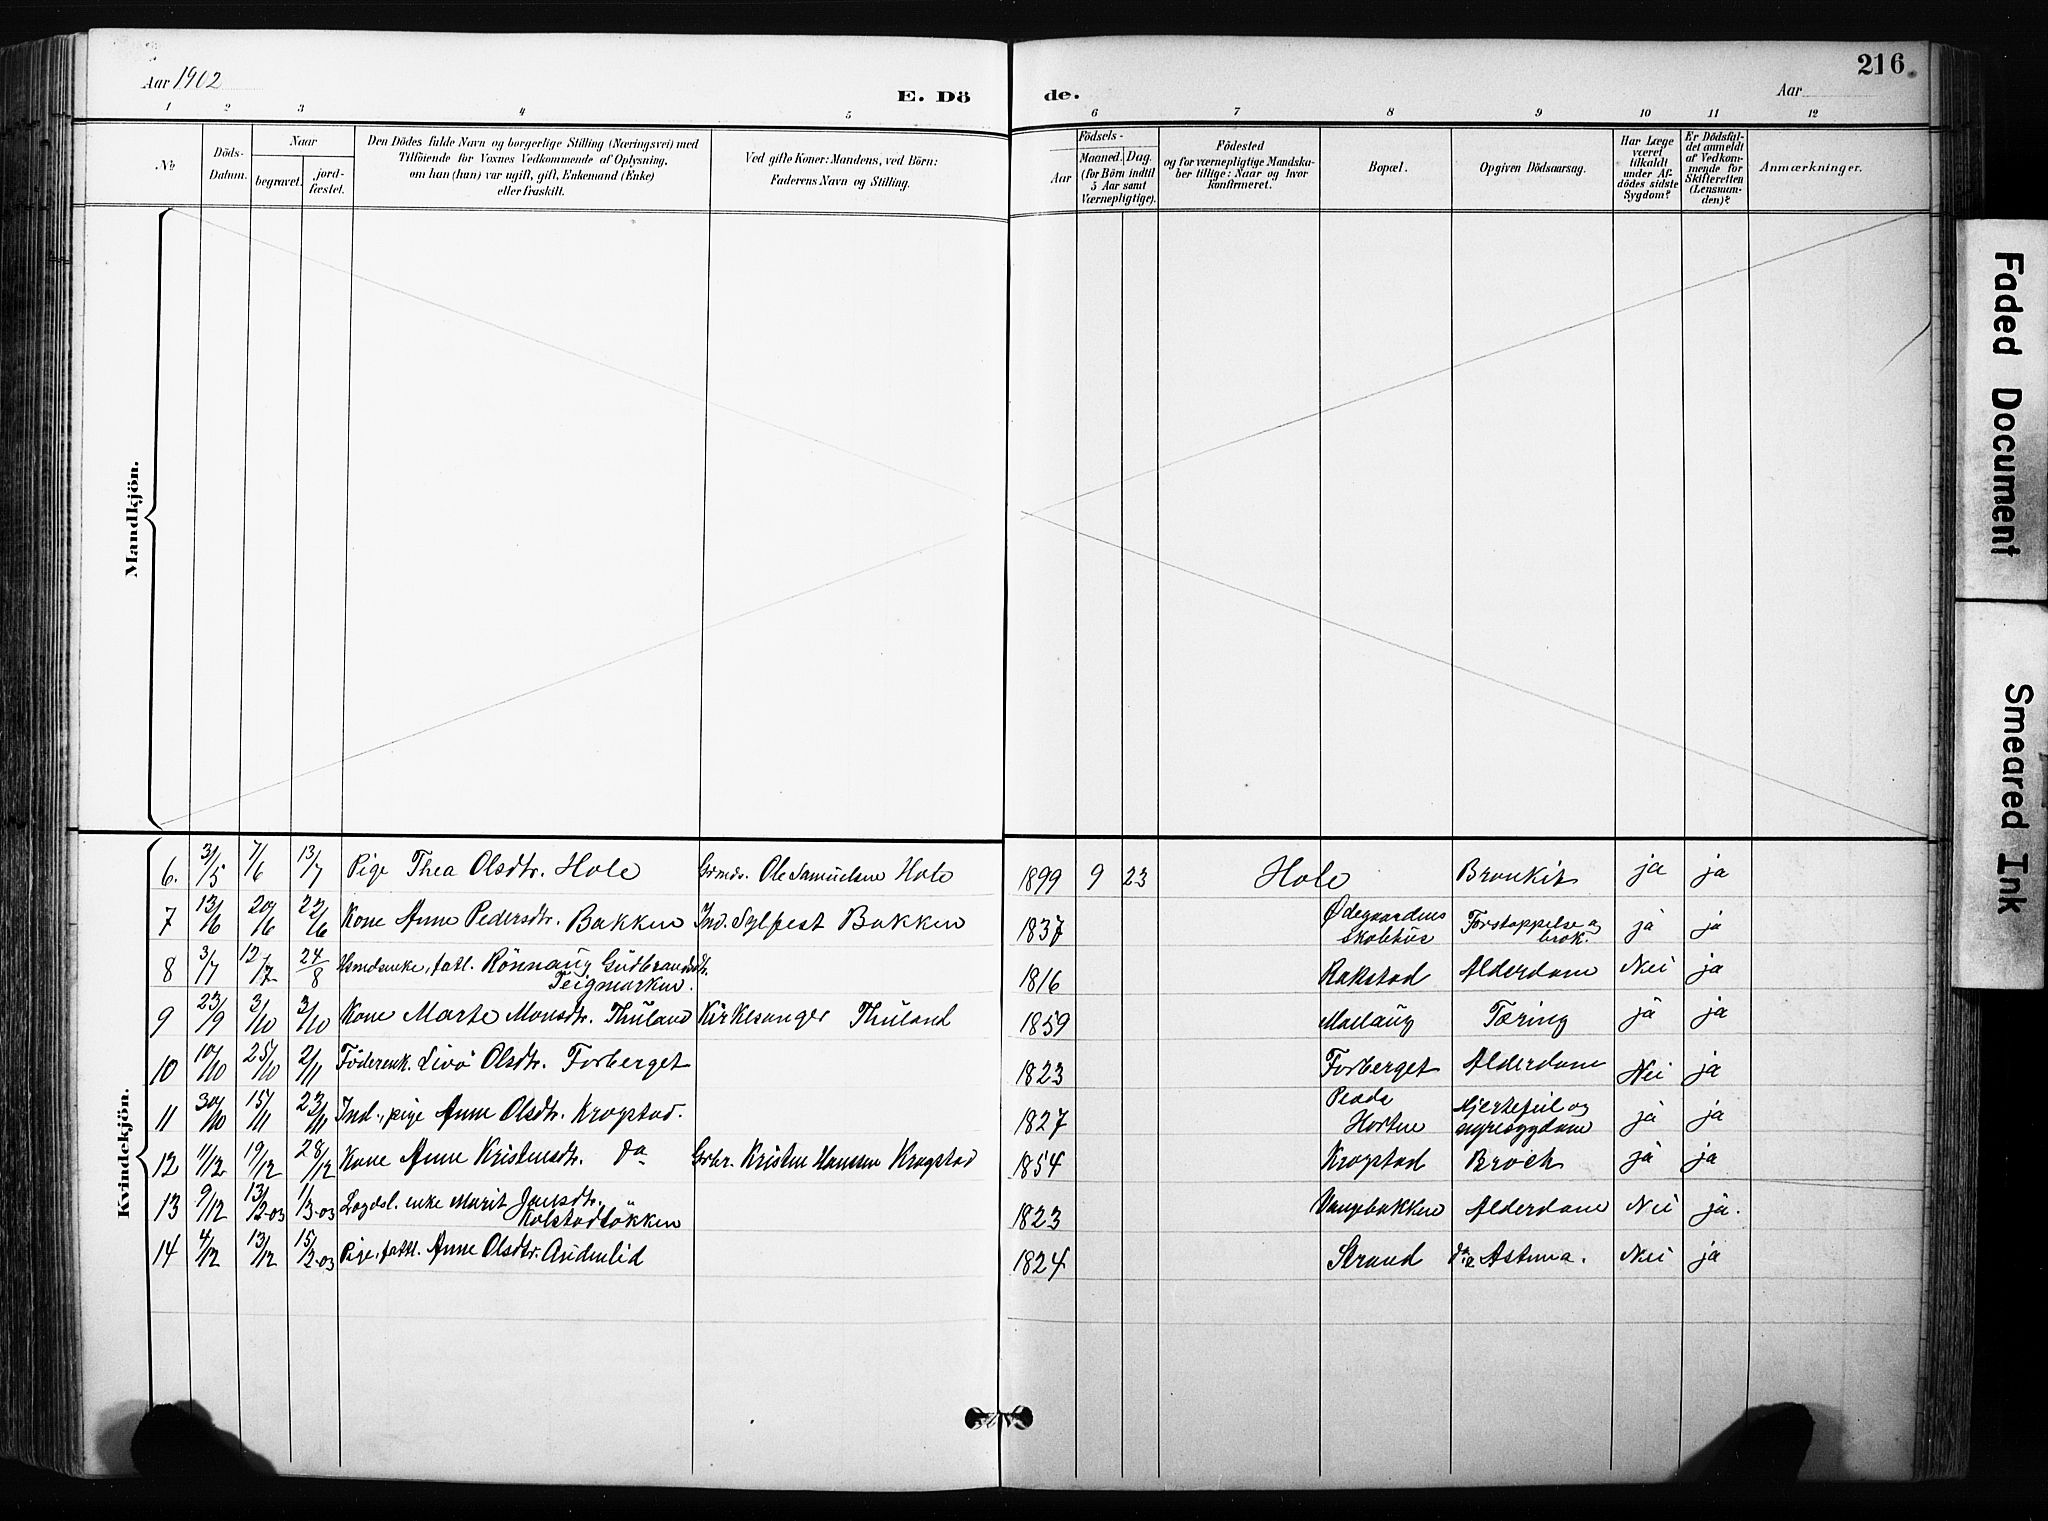 216
Aar 1902
E. Dö de.
Aar
1 2 3 4 5 6 7 8 9 10 11 12
No
Döds-Datum.
Naar
begravet.
jord-fæstet.
Den Dödes fulde Navn og borgerlige Stilling (Næringsvei) med
Tilföiende for Voxnes Vedkommende af Oplysning,
om han (hun) var ugift, gift, Enkemand (Enke)
eller fraskilt.
Ved gifte Koner: Mandens, ved Börn:
Faderens Navn og Stilling.
Födsels-
Aar
Maaned. Dag.
(for Börn indtil
5 Aar samt
Værnepligtige).
Födested
og for værnepligtige Mandska-
ber tillige: Naar og hvor
konfirmeret.
Bopæl.
Opgiven Dödsaarsag.
Har Læge
været
tilkaldt
under Af-
dödes sidste
Sygdom?
Er Dödsfal-
det anmeldt
af Vedkom-
mende for
Skifteretten
(Lensman-
den)?
Anmærkninger.
Mandkjön.
Kvindekjön.
6. 31/5 7/6 13/7 Pige Thea Olsdtr. Hole Grmds. Ole Samuelsen Hole 1899 9 23 Hole Bronkit ja ja
7 13/6 20/6 22/6 Kone Anne Pedersdtr. Bakken Ind. Sylfest Bakken 1837 Ødegaardens skolehus Forstoppelse og brok. ja ja
8 3/7 12/7 24/8 Hsmdsenke, fatl. Rönnaug Gudbrandsdtr. Teigmarken. 1816 Rakstad Alderdom Nei ja
9 23/9 3/10 3/10 Kone Marte Monsdtr. Thuland Kirkesanger Thuland 1859 Moelaug Tæring ja ja
10 10/10 25/10 2/11 Föderenk. Livö Olsdtr. Forberget 1823 Forberget Alderdom Nei ja
11 30/10 15/11 23/11 Ind., pige Anne Olsdtr. Krogstad. 1827 Horten Hjertefeil og nyresygdom ja ja
12 11/12 19/12 28/12 Kone Anne Kristensdtr. do Grbr. Kristen Hanssen Krogstad 1854 Krogstad Brock ja ja
13 9/12 13/2-03 1/3-03 Lægdsl. enke Marit Jonsdtr. Kolstadlökken 1823 Vangebakken Alderdom Nei ja.
14 4/12 13/12 15/2-03 Pige, fattl. Anne Olsdtr. Audenlid 1824 Strand Astma. Nei ja
Faded Document
Smeared Ink